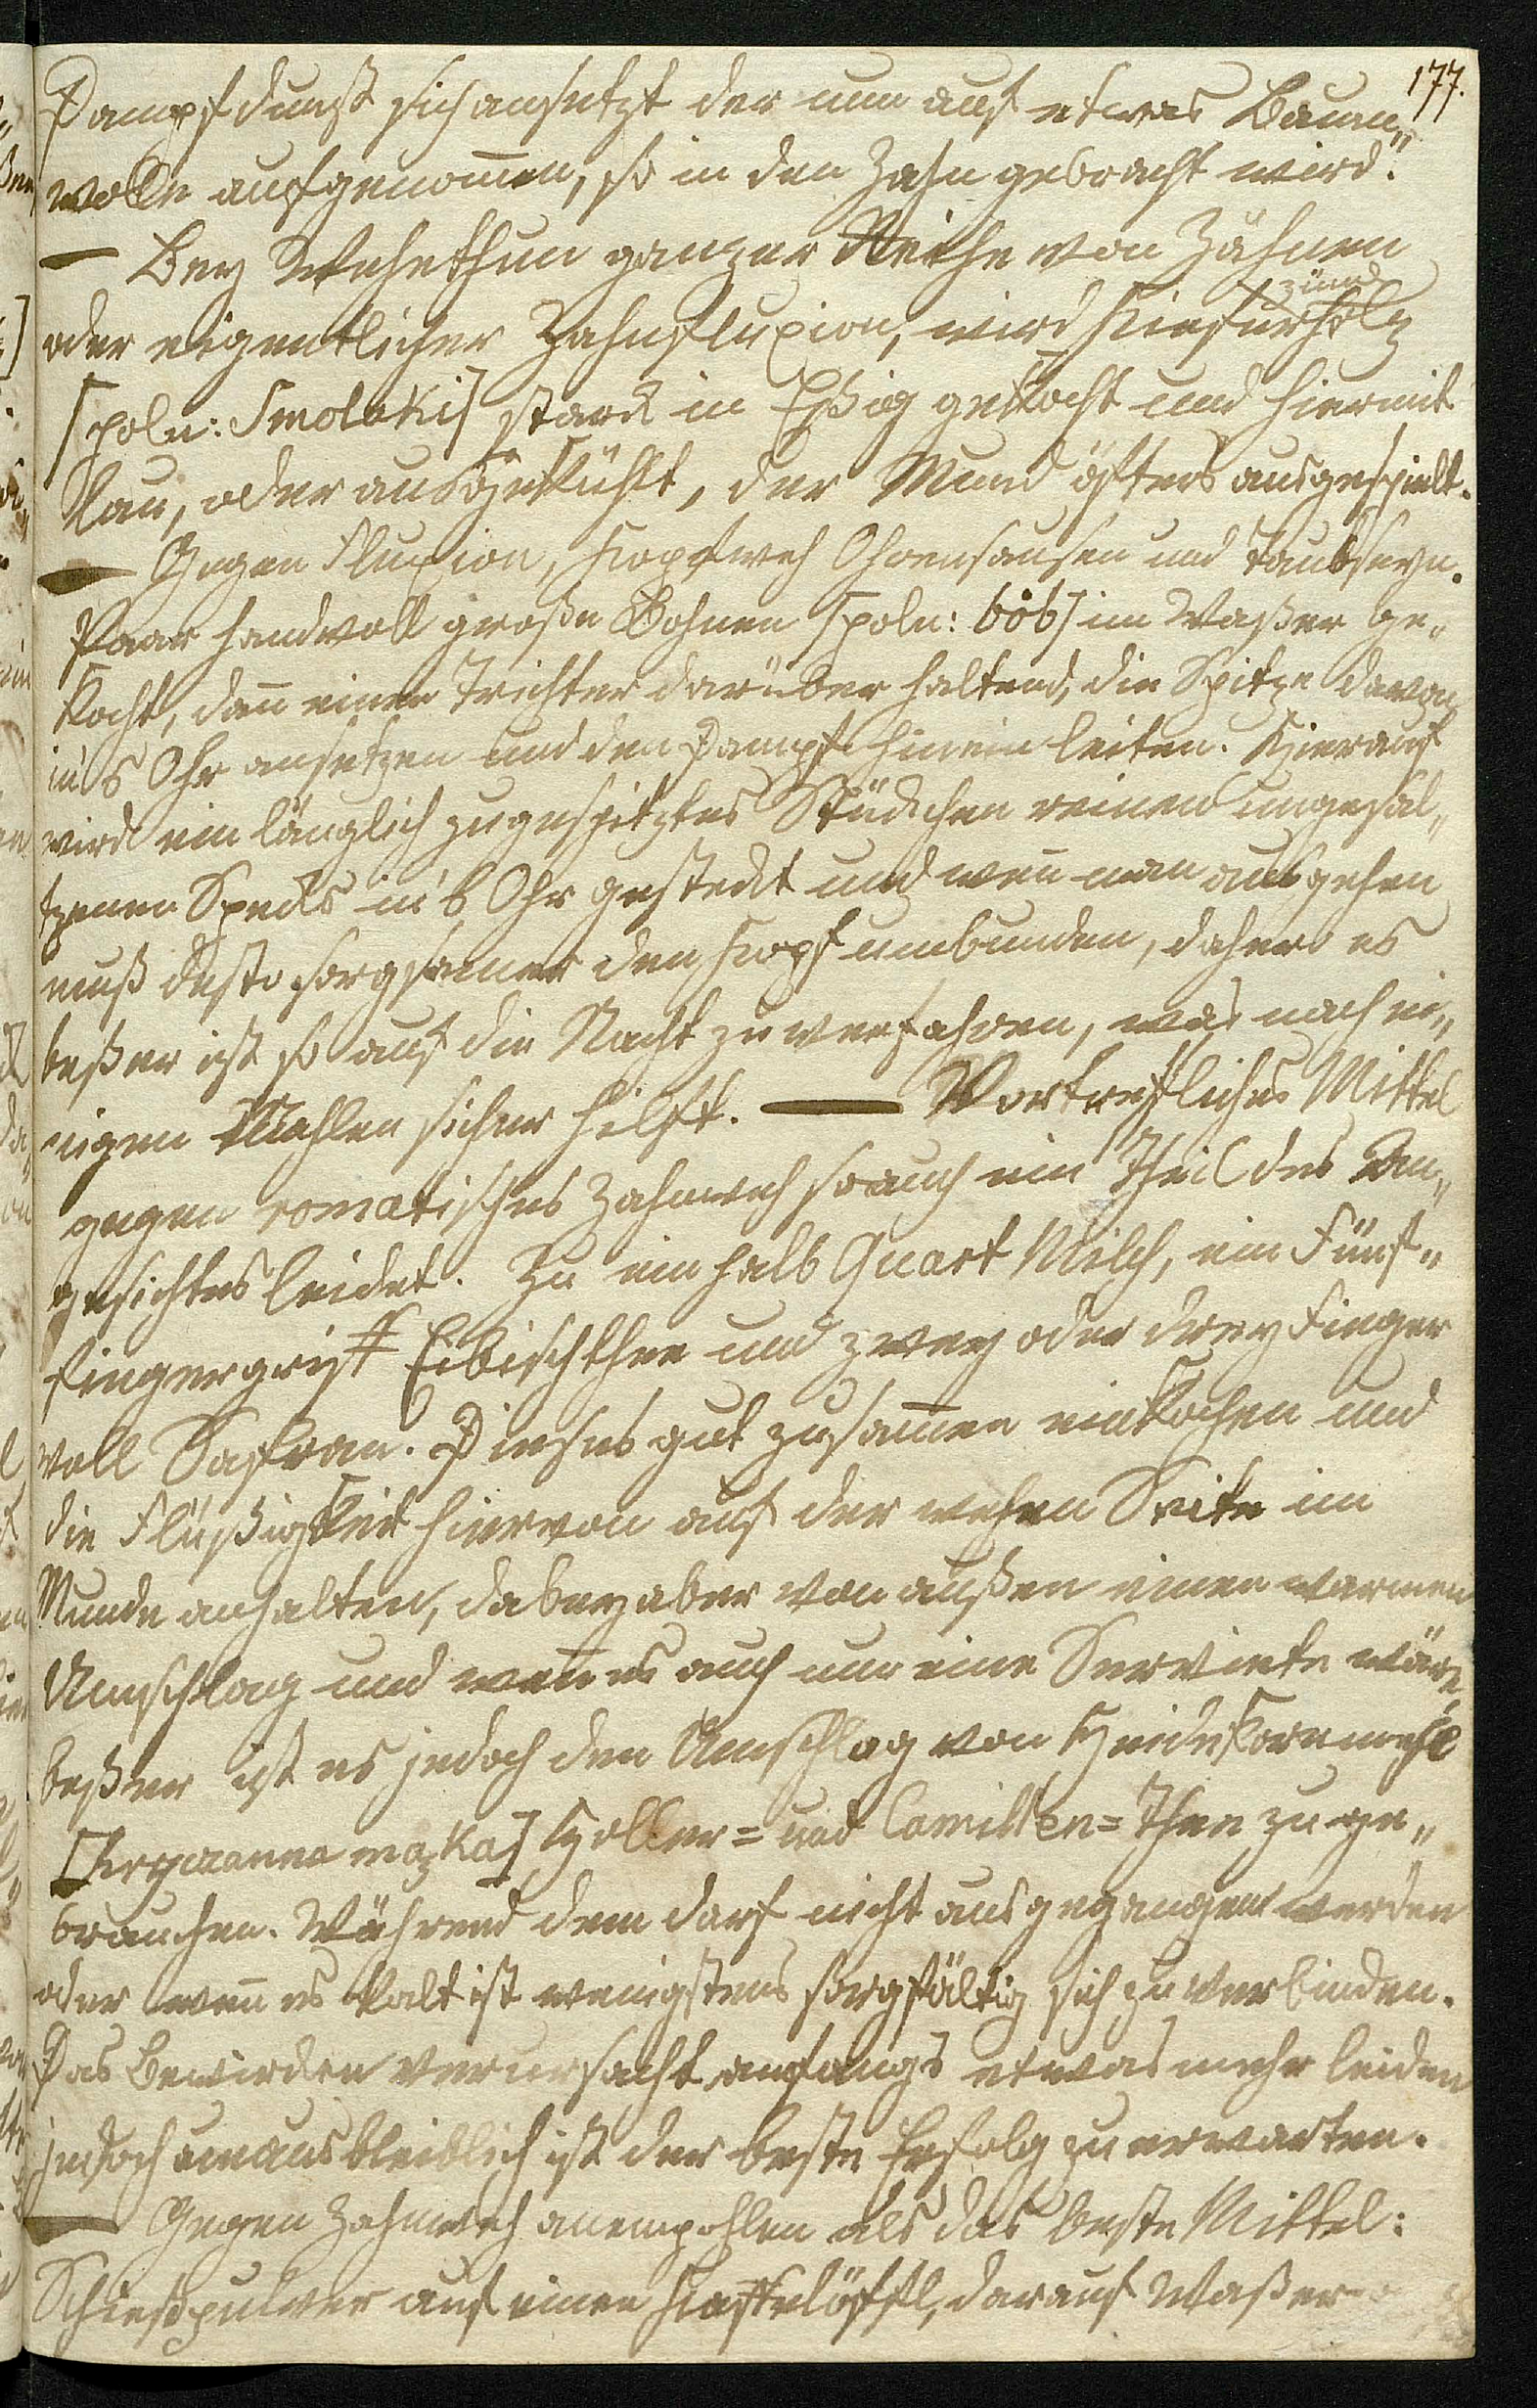 177.
Dampfdunst sich ansetzt der nun auf etwas Baum„
wolle aufgenom̄en, so in den Zahn gebracht wird."
— Bey Wehethun ganzer Reihe von Zähnen
zünd
oder eigentlicher Zahnfluxion, wird Kieferholz
[poln: Smolaki] stark in Eßig gekocht und hiermit
lau, oder ausgekühlt, der Mund öfters ausgespielt.
— Gegen Fluxion, Kopfweh Ohrensausen und Taubseyn.
Paar handvoll große Bohnen [poln: bób] im Waßer ge„
kocht, dan̄ einen Trichter darüber haltend, die Spitze davon
in's Ohr ansetzen und den Dampf hinein leiten. Hierauf
wird ein länglich zugespitztes Stückchen reinen ungesal„
tzenen Specks in's Ohr gesteckt und wen̄ man ausgehen
muß desto sorgsamer den Kopf umbunden, dahero es
beßer ist so auf die Nacht zu verfahren, was nach ei„
nigen Mahlen sicher hilft. — Vortrefliches Mittel
gegen romatisches Zahnweh so auch ein Theil des An„
gesichtes leidet. Zu ein halb Quart Milch, ein Fünf„
fingergrif Eibischthee und zwey oder drey Finger
voll Saffran. Dieses gut zusam̄en einkochen und
die Flüßigkeit hiervon auf der wehen Seite im
Munde anhalten, dabey aber von außen einen warmen
Umschlag und wen̄ es auch nur eine Serviete wäre,
beßer ist es jedoch den Umschlag von Heidekornmehl
[hryczanna mązka] Holler= und Camillen=Thee zu ge„
brauchen. Während dem darf nicht ausgegangen werden
oder wen̄ es kalt ist wenigstens sorgfältig sich zu verbinden.
Das Bewirken verursacht anfangs etwas mehr leiden
jedoch unausbleiblich ist der beste Erfolg zu erwarten.
— Gegen Zahnweh anempohlen als das beste Mittel:
Schießpulver auf einen Kaffelöffl, darauf Waßer